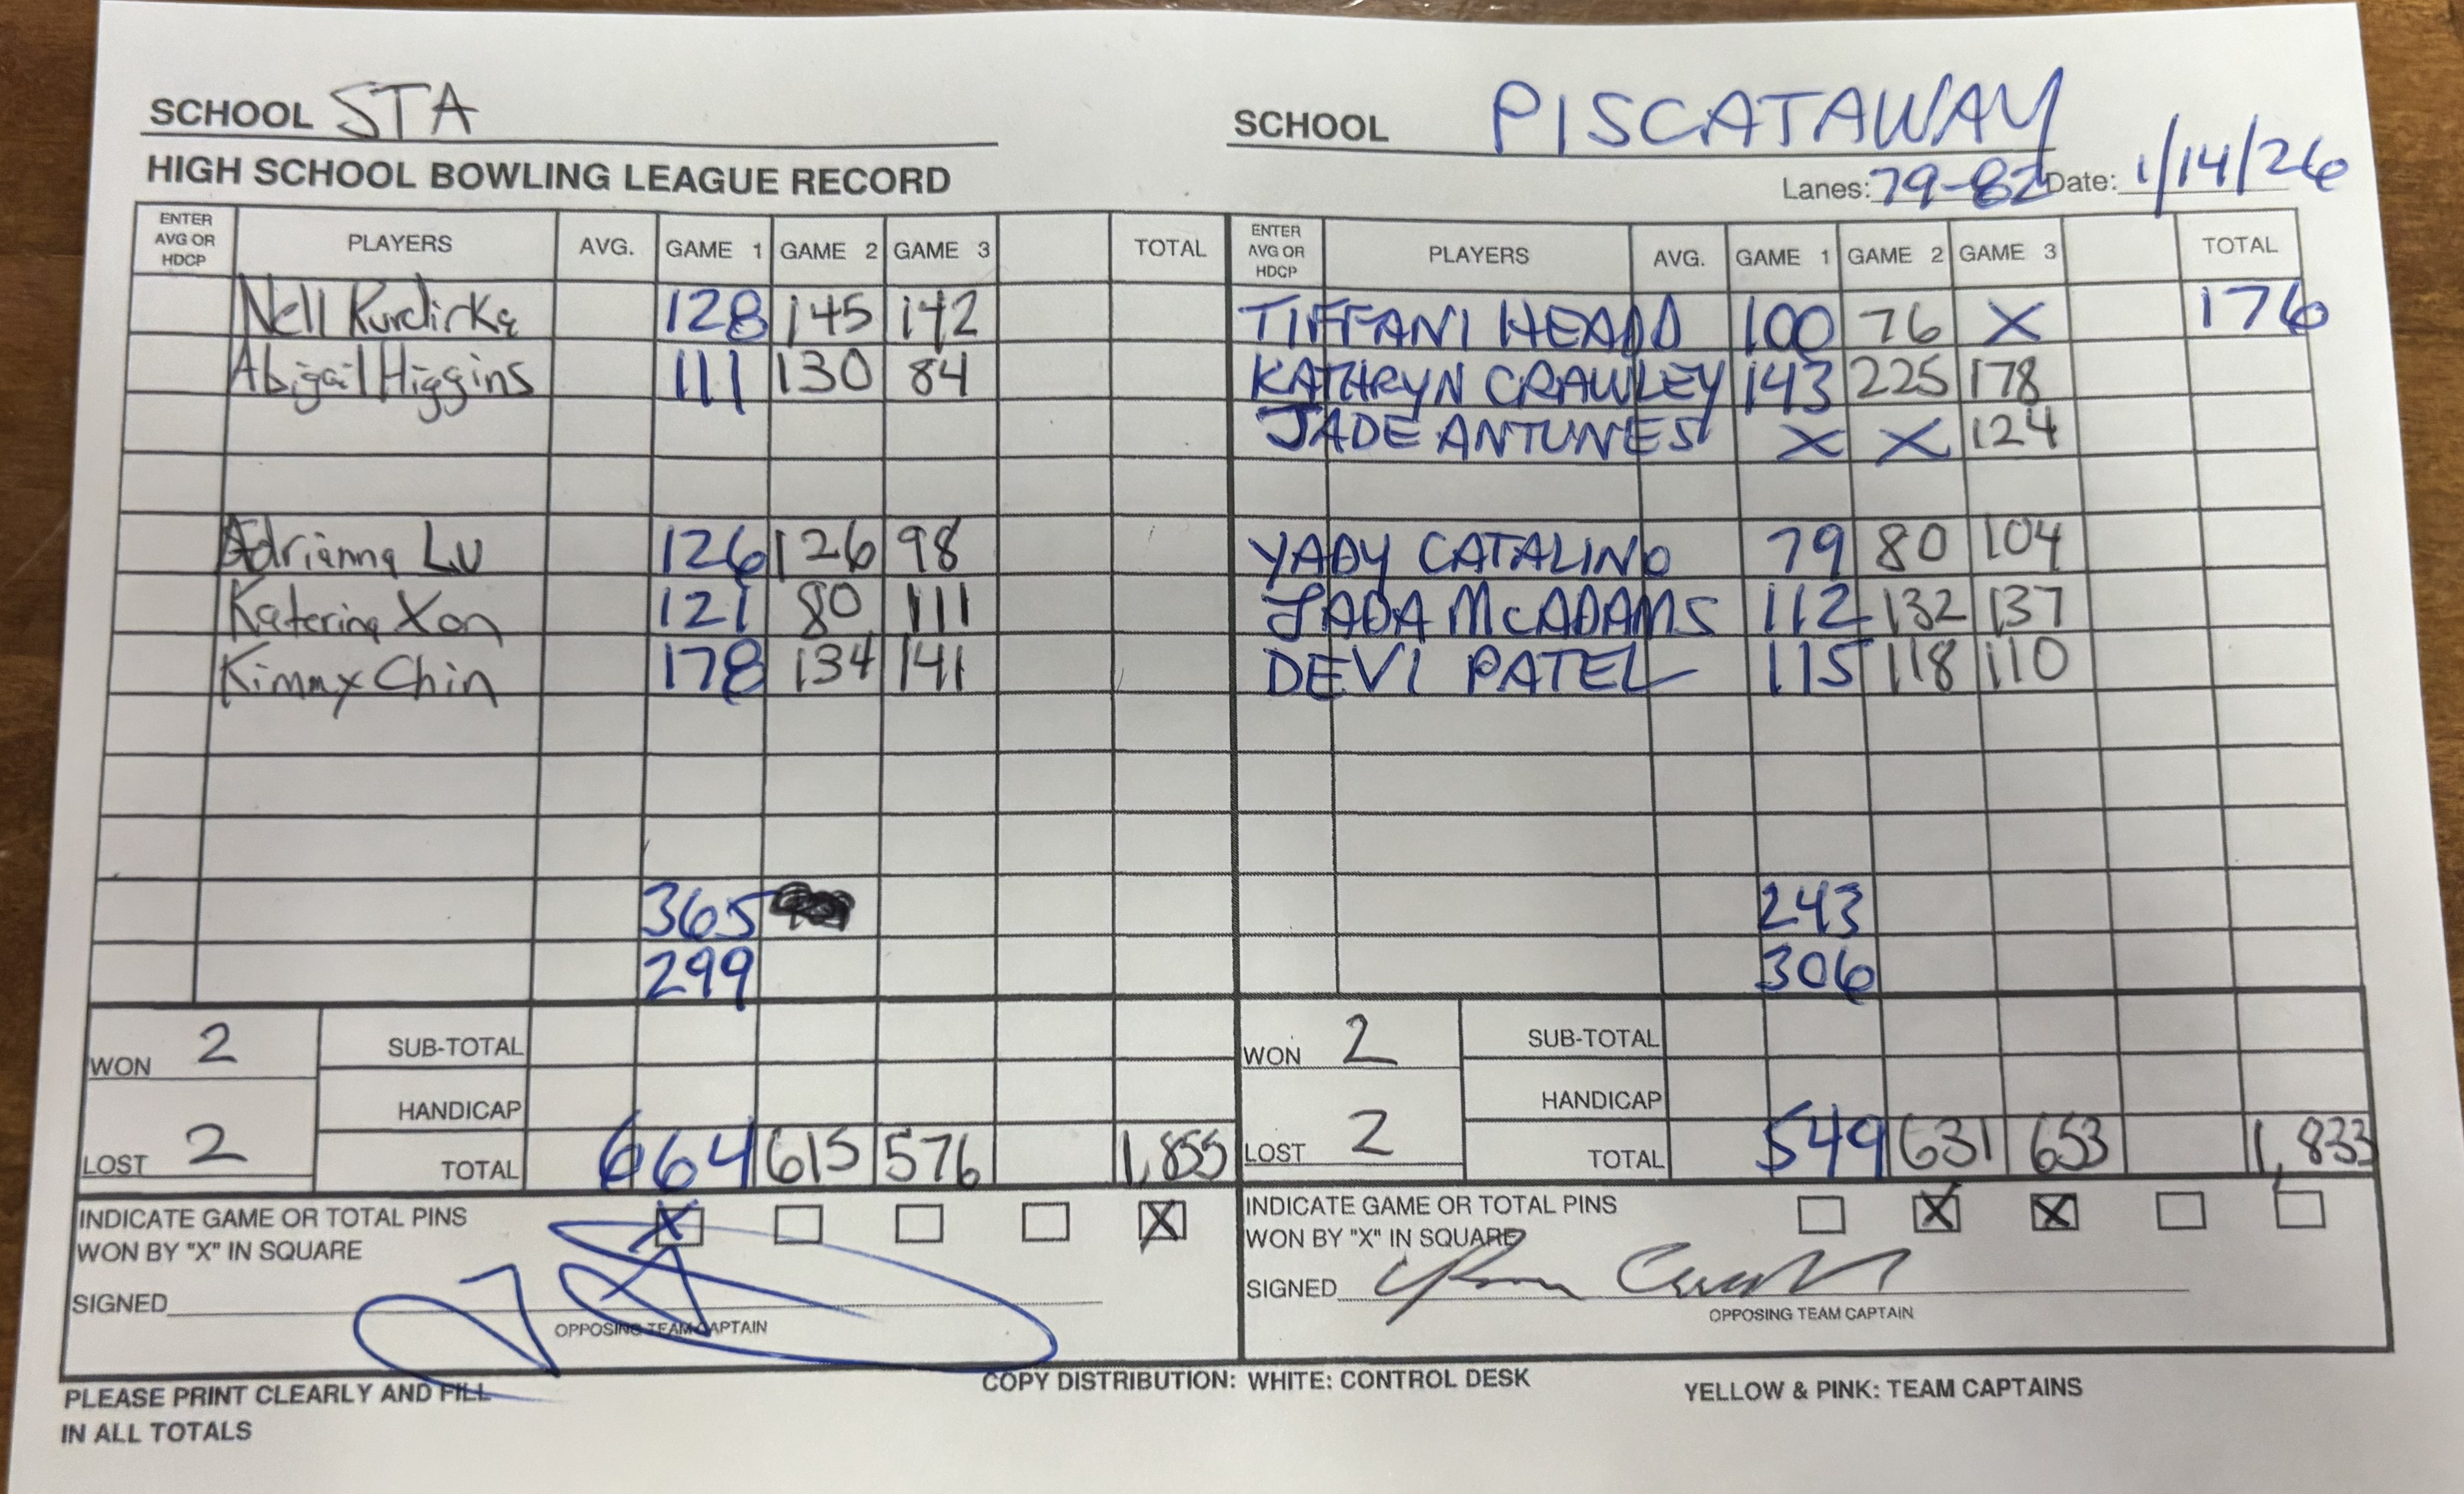 SCHOOL STA
SCHOOL PISCATAWAY
HIGH SCHOOL BOWLING LEAGUE RECORD
Lanes: 79-82 Date: 1/14/26
ENTER AVG OR HDCP PLAYERS AVG. GAME 1 GAME 2 GAME 3 TOTAL ENTER AVG OR HDCP PLAYERS AVG. GAME 1 GAME 2 GAME 3 TOTAL
Nell 128 145 142 TIFFANI HEADD 100 76 X 176
Abigail Higgins 111 130 84 KATHRYN CRAWLEY 143 225 178
JADE ANTUNES X X 124
Adrianna Lu 126 126 98 YADY CATALINO 79 80 104
Katerina 121 80 111 JADA McADAMS 112 132 137
Kimmy Chin 178 134 141 DEVI PATEL 115 118 110
365 243
299 306
WON 2 SUB-TOTAL WON 2 SUB-TOTAL
HANDICAP HANDICAP
LOST 2 TOTAL 664 615 576 1,855 LOST 2 TOTAL 549 631 653 1,833
INDICATE GAME OR TOTAL PINS X X INDICATE GAME OR TOTAL PINS X X
WON BY "X" IN SQUARE WON BY "X" IN SQUARE
SIGNED SIGNED
OPPOSING TEAM CAPTAIN OPPOSING TEAM CAPTAIN
PLEASE PRINT CLEARLY AND FILL COPY DISTRIBUTION: WHITE: CONTROL DESK YELLOW & PINK: TEAM CAPTAINS
IN ALL TOTALS